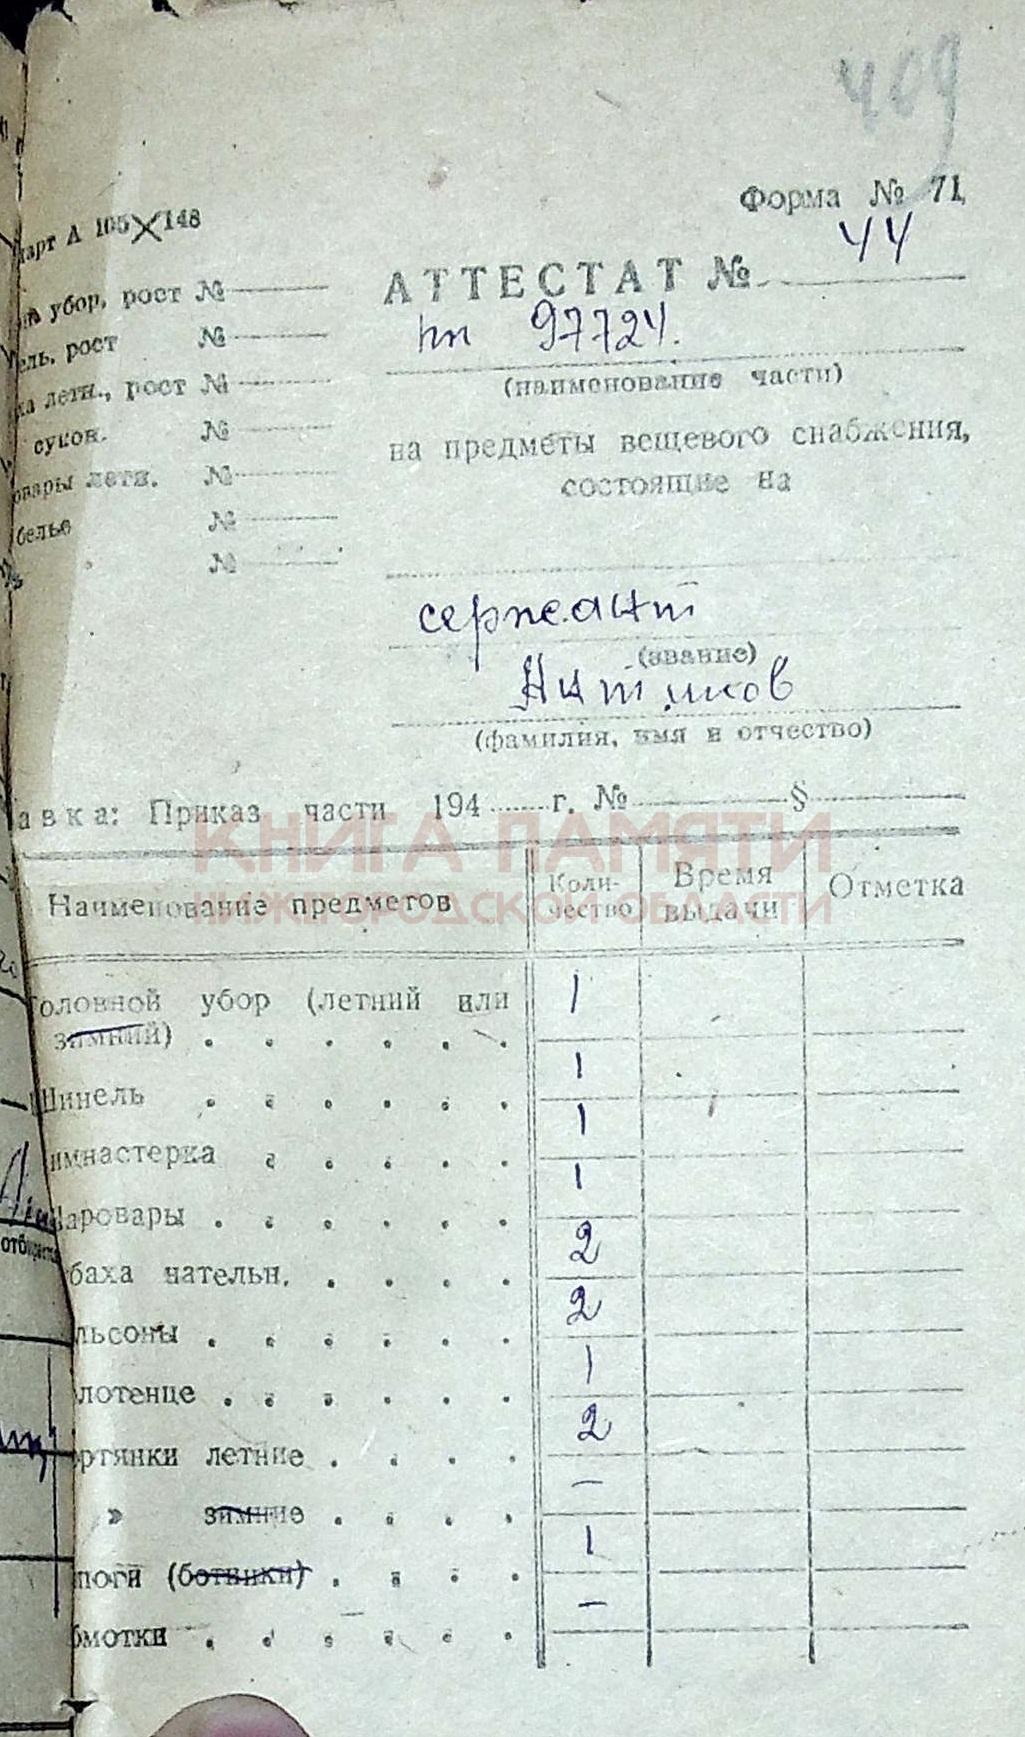 409
Форма № 71
арт А 105X148
44
АТТЕСТАТ №
убор, рост №
пп 97724.
ель, рост №
(наименование части)
ка летн., рост №
сукон. №
на предметы вещевого снабжения,
овары летн. №
состоящие на
белье №
" №
сержант
(звание)
(фамилия, имя и отчество)
авка: Приказ части 194 г. № §
КНИГА ПАМЯТИ
НИЖЕГОРОДСКОЙ ОБЛАСТИ
Наименование предметов
Коли-
чество
Время
выдачи
Отметка
Головной убор (летний или
зимний) 1
Шинель 1
имнастерка 1
Шаровары 1
баха нательн. 2
льсоны 2
лотенце 1
ртянки летние 2
» зимние –
поги (ботинки) 1
бмотки –